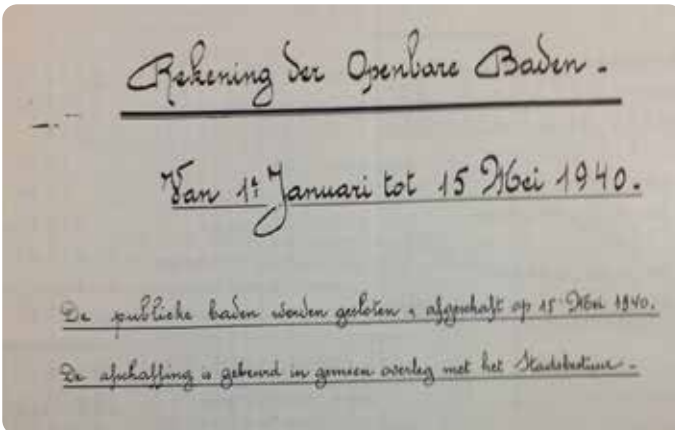 Rekening der Openbare Baden.
Van 1e Januari tot 15 Mei 1940.
De publieke baden werden gesloten & afgeschaft op 15 Mei 1940.
De afschaffing is gebeurd in gemeen overleg met het Stadsbestuur.